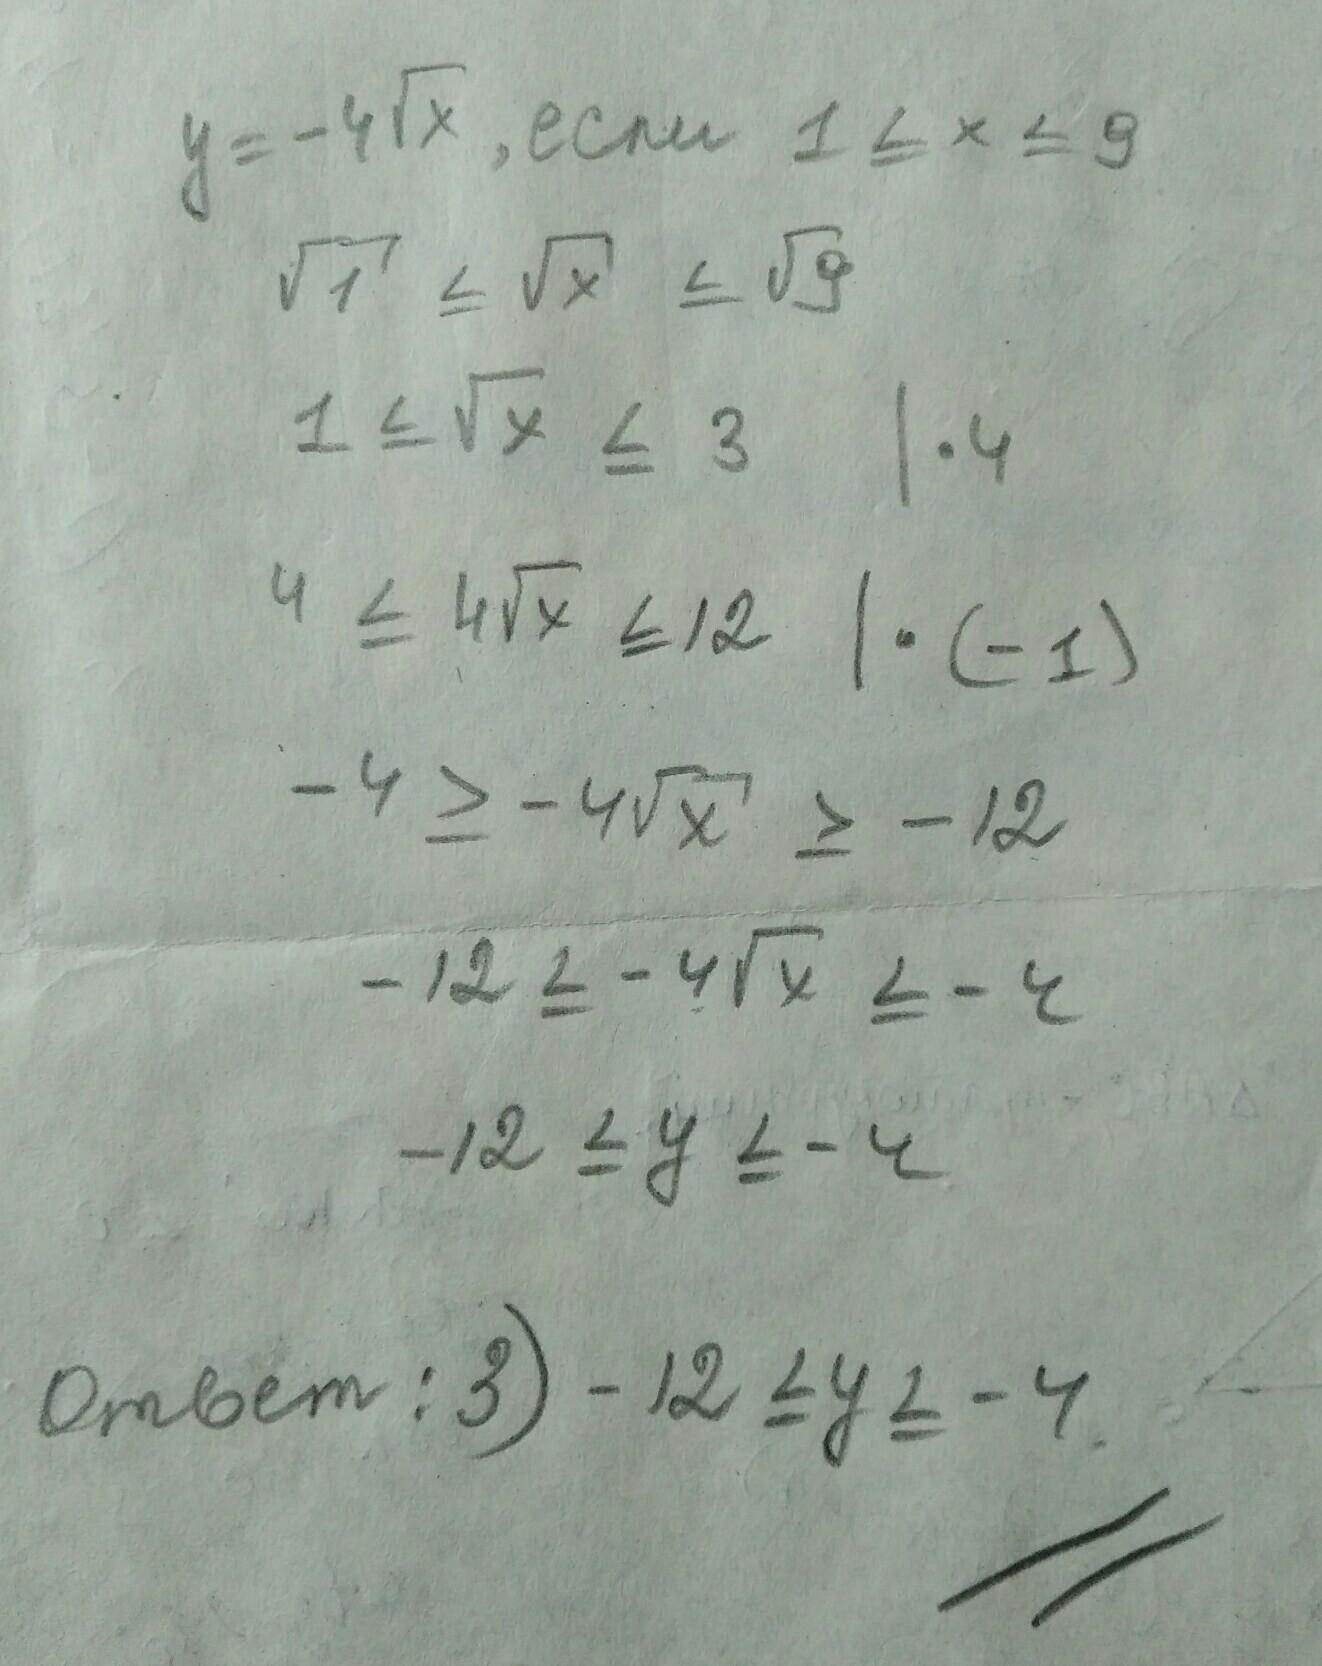 y = -4√x, если 1 ≤ x ≤ 9
√1 ≤ √x ≤ √9
1 ≤ √x ≤ 3 |·4
4 ≤ 4√x ≤ 12 |·(-1)
-4 ≥ -4√x ≥ -12
-12 ≤ -4√x ≤ -4
-12 ≤ y ≤ -4
Ответ: 3) -12 ≤ y ≤ -4.